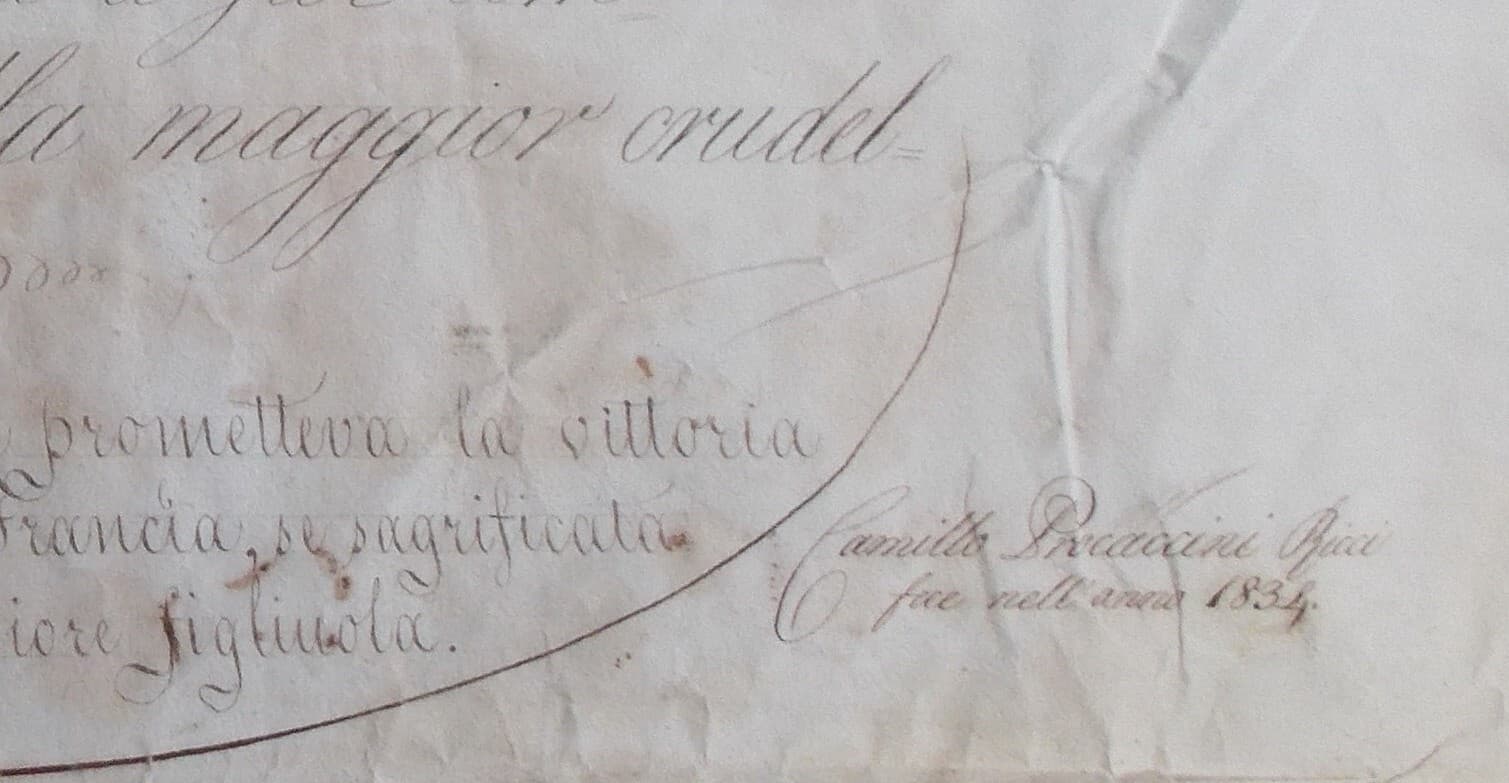 la maggior crudel=
prometteva la vittoria
Francia, se sagrificata
iore figliuola.
Camillo Procaccini Ricci
fece nell'anno 1834.